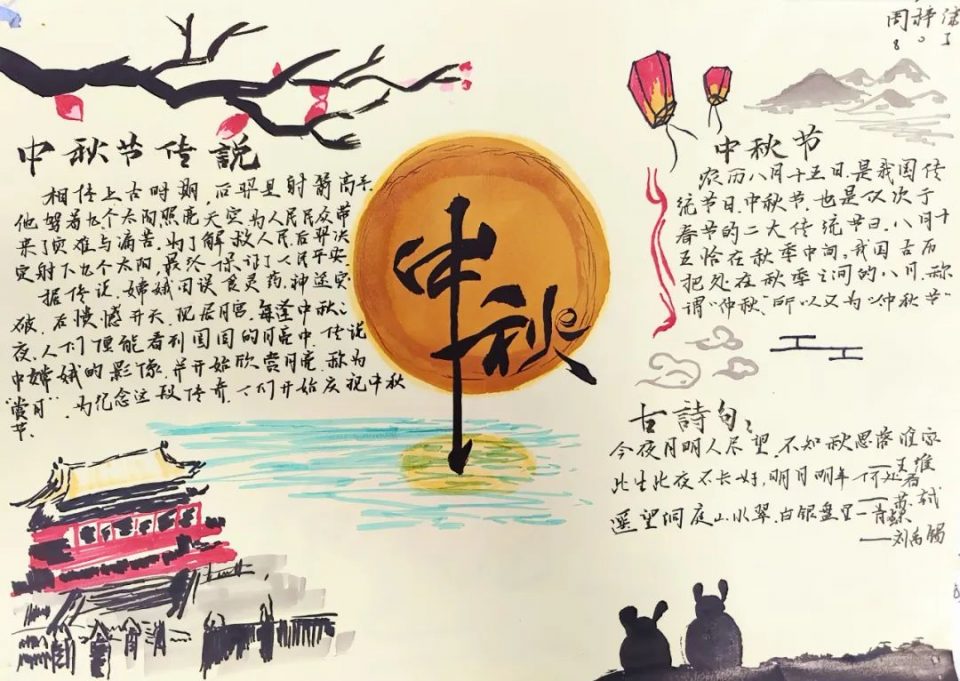 周梓
803
中秋节传説
相传上古时期，后羿且射箭高手
他驾着九个太阳照亮天空为人民民众带
来了灾难与痛苦，为了解救人民，后羿决
定射下九个太阳，最终保证了人民平安。
据传说，嫦娥因误食灵药，神送突
破，在愤憾升天，现居月宫，每逢中秋之
夜，人们便能看到圆圆的月亮中，传说
中嫦娥的影像，并开始欣赏月亮，称为
“赏月”，为纪念这段传奇，人们开始庆祝中秋
节。
中秋
中秋节
农历八月十五日，是我国传
统节日，中秋节，也是仅次于
春节的二大传统节日，八月十
五恰在秋季中间，我国古历
把处在秋季之间的八月，称
谓“仲秋”，所以又为“仲秋节”
古詩句：
今夜月明人尽望，不知秋思落谁家
——王维
此生此夜不长好，明月明年何处看
——苏轼
遥望洞庭山水翠，白银盘里一青螺
——刘禹锡